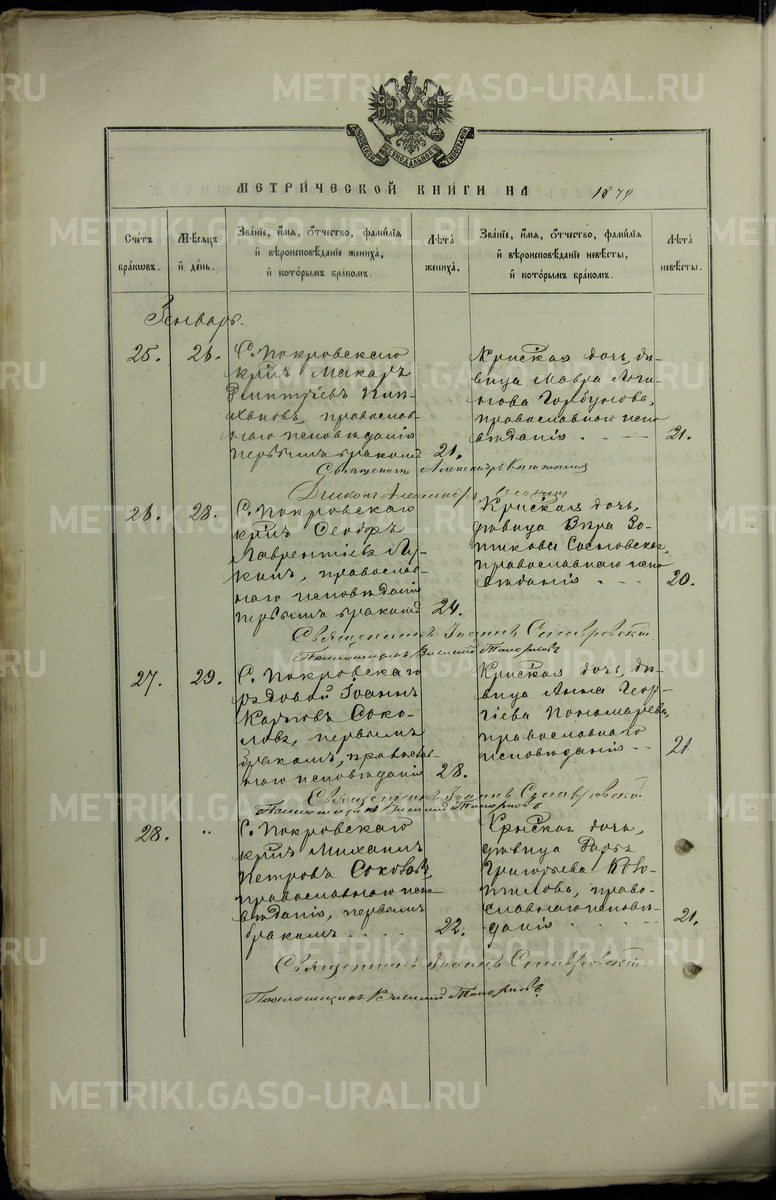 МОСКОВСКОЙ СУНОДАЛЬНОЙ ТИПОГРАФІИ
МЕТРИ́ЧЕСКОЙ КНИГИ НА 1879
Счетъ бра́кωвъ.
Мѣсяцъ и̂ де́нь.
Зва́нїе, и҆́мѧ, ѻ҆́тчество, фами́лїѧ и҆ вѣроисповѣ́данїе жениха̀, и҆ кото́рымъ бра́комъ.
Лѣта̀ жениха̀.
Зва́нїе, и҆́мѧ, ѻ҆́тчество, фами́лїѧ и҆ вѣроисповѣ́данїе невѣ́сты, и҆ кото́рымъ бра́комъ.
Лѣта̀ невѣ́сты.
Январь.
25.
26.
С. Покровскаго
кр͠нъ Макаръ
Димитріевъ
православ-
наго исповѣданія
первымъ бракомъ
21.
Кр͠нская дочь, дѣ-
вица Мавра Логи-
нова Горбунова,
православнаго испо
вѣданія.
21.
Священникъ Александръ
Діаконъ Александръ
26.
28.
С. Покровскаго
кр͠нъ Ѳеодоръ
Лаврентіевъ Лу-
кинъ, православ-
наго исповѣданія
первымъ бракомъ
24.
Кр͠нская дочь,
дѣвица Вѣра Зо-
тикова Сосновская,
православнаго испо
вѣданія
20.
Священникъ Іоаннъ Ставровскій
Псаломщикъ Василій Топорковъ
27.
29.
С. Покровскаго
рядовой Іоаннъ
Карповъ Соко-
ловъ, первымъ
бракомъ, православ-
наго исповѣданія
28.
Кр͠нская дочь, дѣ-
вица Анна Геор-
гіева Пономарева,
православнаго
исповѣданія
21
Священникъ Іоаннъ Ставровскій
Псаломщикъ Василій Топорковъ
28.
"
С. Покровскаго
кр͠нъ Михаилъ
Петровъ Соколовъ,
православнаго испо
вѣданія, первымъ
бракомъ
22.
Кр͠нская дочь,
дѣвица Дарья
Григорьева Ково-
пилова, право-
славнаго исповѣ-
данія
21.
Священникъ Іоаннъ Ставровскій
Псаломщикъ Василій Топорковъ
METRIKI.GASO-URAL.RU